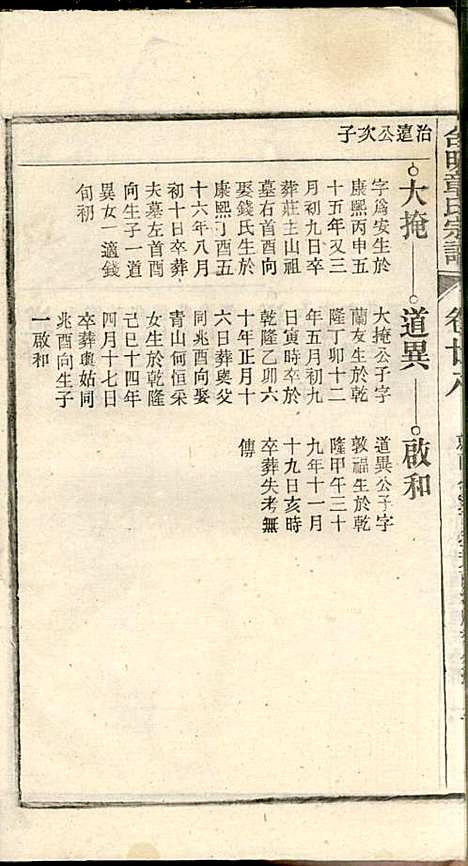 治遠公次子
大掩
字爲安生於
康熙丙申五
十五年又三
月初九日卒
葬莊主山祖
墓右首酉向
娶錢氏生於
康熙丁酉五
十六年八月
初十日卒葬
夫墓左首酉
向生子一道
異女一適錢
旬初
道異
大掩公子字
蘭友生於乾
隆丁卯十二
年五月初九
日寅時卒於
乾隆乙卯六
十年正月十
六日葬與父
同兆酉向娶
青山何恒采
女生於乾隆
己巳十四年
四月十七日
卒葬與姑同
兆酉向生子
一啟和
啟和
道異公子字
敦福生於乾
隆甲午三十
九年十一月
十九日亥時
卒葬失考無
傳
章氏宗譜
卷廿八